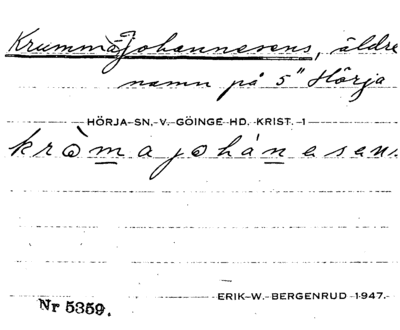 Krumma Johannesens, äldre
namn på 5" Hörja
HÖRJA SN. V. GÖINGE HD. KRIST. 1
kròmajohánesens.
ERIK W. BERGENRUD 1947.
Nr 5359.